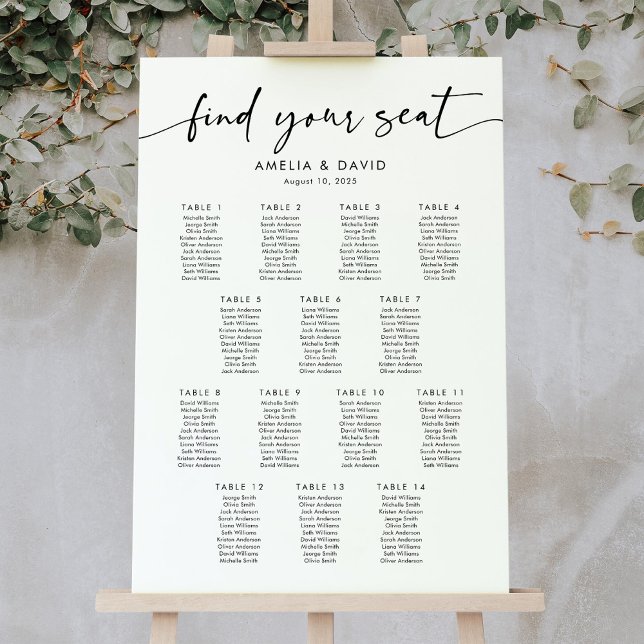 find your seat
AMELIA & DAVID
August 10, 2025
TABLE 1
Michelle Smith
Jeorge Smith
Olivia Smith
Kristen Anderson
Oliver Anderson
Jack Anderson
Sarah Anderson
Liana Williams
Seth Williams
David Williams
TABLE 2
Jack Anderson
Sarah Anderson
Liana Williams
Seth Williams
David Williams
Michelle Smith
Jeorge Smith
Olivia Smith
Kristen Anderson
Oliver Anderson
TABLE 3
David Williams
Michelle Smith
Jeorge Smith
Olivia Smith
Kristen Anderson
Oliver Anderson
Jack Anderson
Sarah Anderson
Liana Williams
Seth Williams
TABLE 4
Jack Anderson
Sarah Anderson
Liana Williams
Seth Williams
Kristen Anderson
Oliver Anderson
David Williams
Michelle Smith
Jeorge Smith
Olivia Smith
TABLE 5
Sarah Anderson
Liana Williams
Seth Williams
Kristen Anderson
Oliver Anderson
David Williams
Michelle Smith
Jeorge Smith
Olivia Smith
Jack Anderson
TABLE 6
Liana Williams
Seth Williams
David Williams
Michelle Smith
Jeorge Smith
Olivia Smith
Jack Anderson
Sarah Anderson
Kristen Anderson
Oliver Anderson
TABLE 7
Jack Anderson
Sarah Anderson
Liana Williams
Seth Williams
David Williams
Michelle Smith
Jeorge Smith
Olivia Smith
Kristen Anderson
Oliver Anderson
TABLE 8
David Williams
Michelle Smith
Jeorge Smith
Olivia Smith
Jack Anderson
Sarah Anderson
Liana Williams
Seth Williams
Kristen Anderson
Oliver Anderson
TABLE 9
Michelle Smith
Jeorge Smith
Olivia Smith
Kristen Anderson
Oliver Anderson
Jack Anderson
Sarah Anderson
Liana Williams
Seth Williams
David Williams
TABLE 10
Sarah Anderson
Liana Williams
Seth Williams
Kristen Anderson
Oliver Anderson
David Williams
Michelle Smith
Jeorge Smith
Olivia Smith
Jack Anderson
TABLE 11
Kristen Anderson
Oliver Anderson
David Williams
Michelle Smith
Jeorge Smith
Olivia Smith
Jack Anderson
Sarah Anderson
Liana Williams
Seth Williams
TABLE 12
Jeorge Smith
Olivia Smith
Jack Anderson
Sarah Anderson
Liana Williams
Seth Williams
Kristen Anderson
Oliver Anderson
David Williams
Michelle Smith
TABLE 13
Kristen Anderson
Oliver Anderson
Jack Anderson
Sarah Anderson
Liana Williams
Seth Williams
David Williams
Michelle Smith
Jeorge Smith
Olivia Smith
TABLE 14
David Williams
Michelle Smith
Kristen Anderson
Oliver Anderson
Jeorge Smith
Olivia Smith
Jack Anderson
Sarah Anderson
Liana Williams
Seth Williams